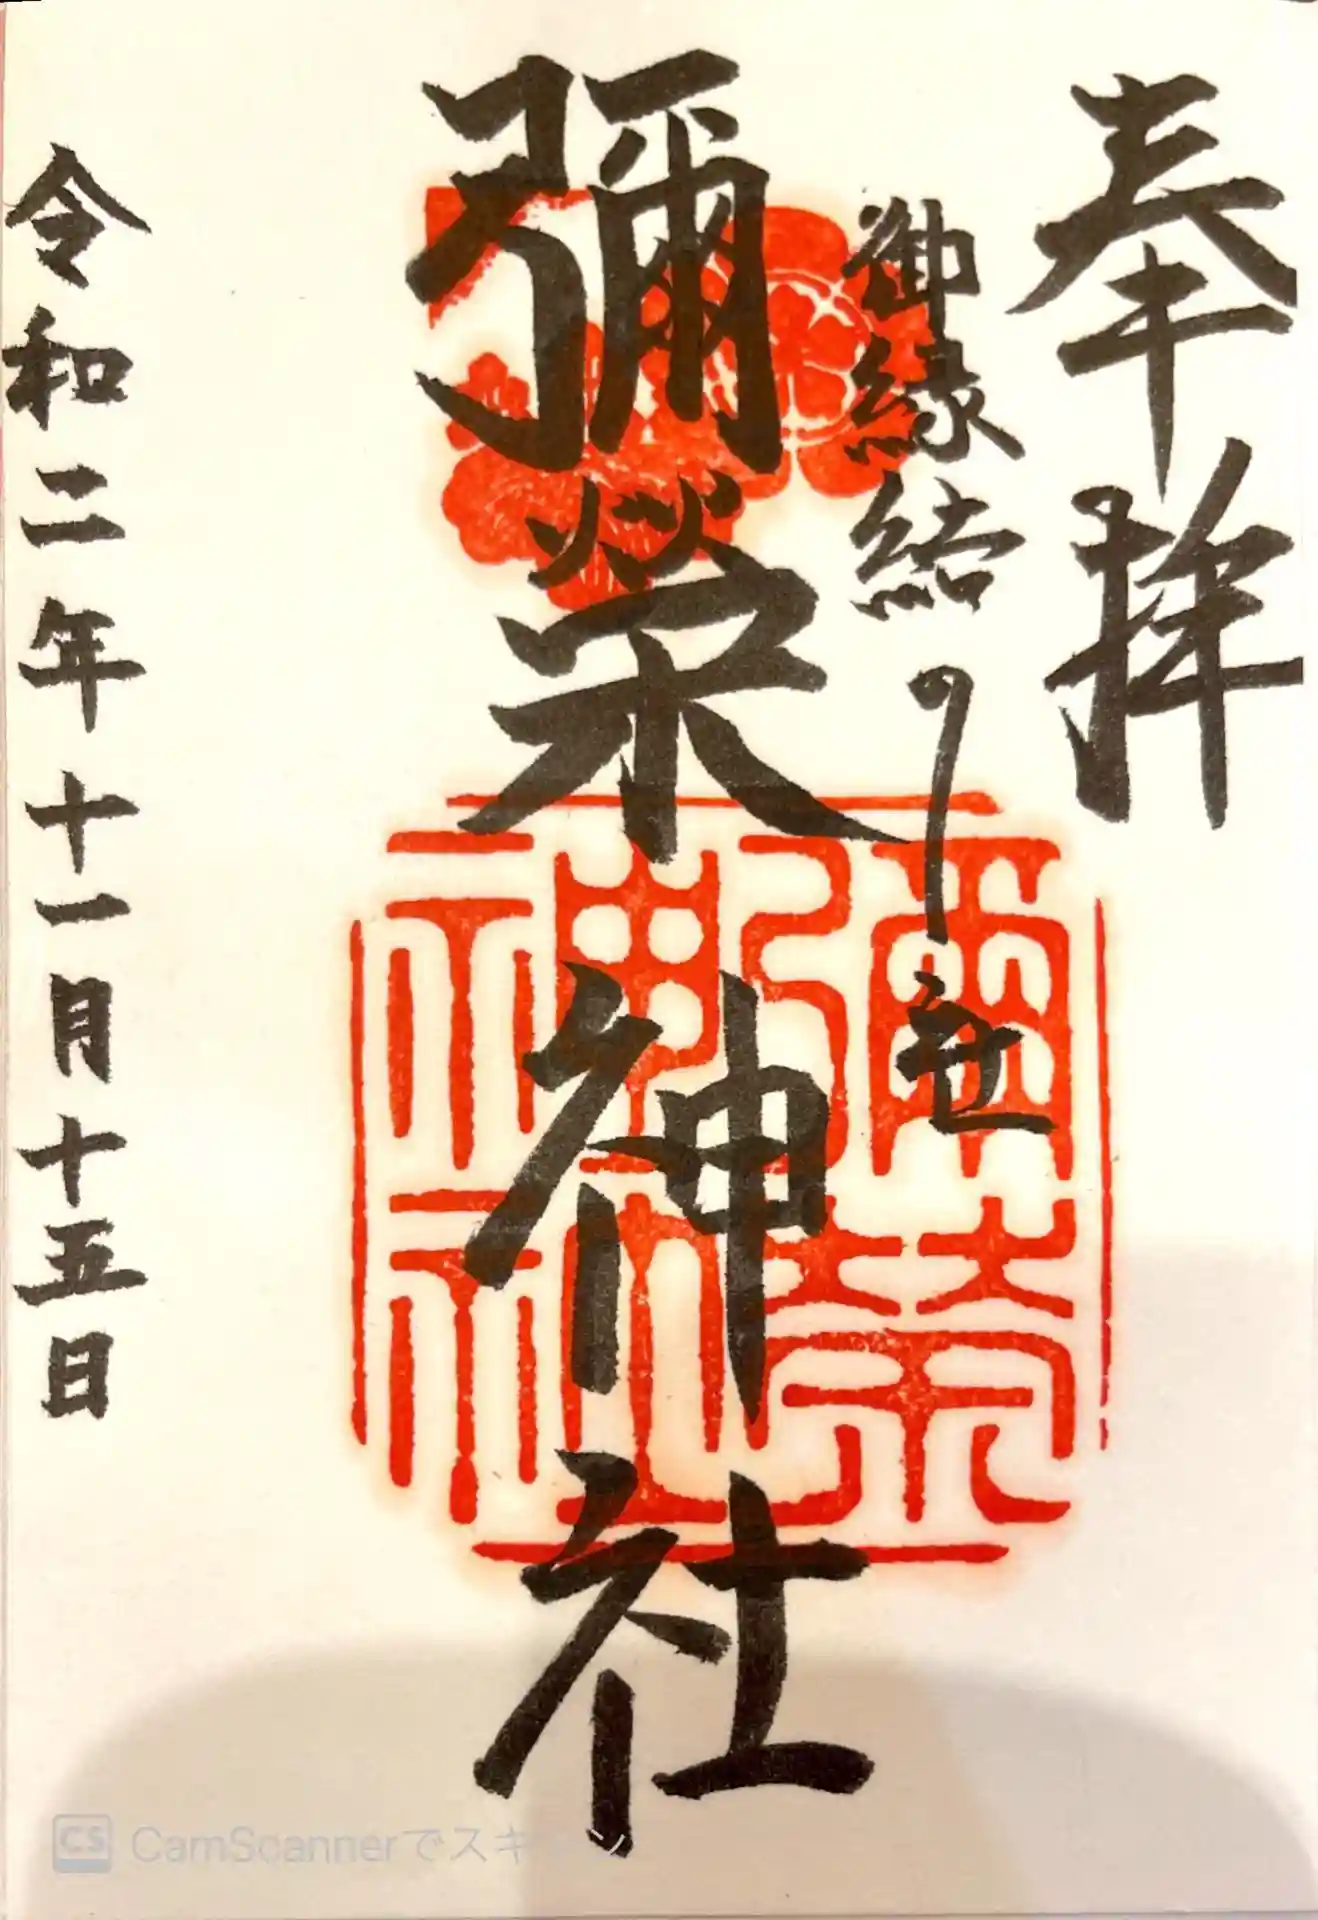 奉拝
御縁結の社
彌榮神社
彌榮
神社
令和二年十一月十五日
CS CamScannerでスキ